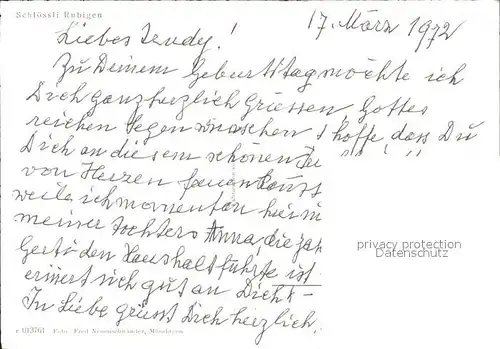 Schlössli Rubigen
17. März 1972
Liebes Trudy!
Zu Deinem Geburtstag möchte ich
Dich ganz herzlich Grüssen Gottes
reichen Segen wünschen I hoffe, dass Du
Dich an diesem schönen
von Herzen kannst
weile ich momentan hier
meiner tochters Anna, die
Gerti den Haushalt führte ist
erinert sich gut an Dich
In Liebe grüsst Dich herzlich.
privacy protection
oldthing.de
r 013761 Foto: Fred Neuenschwander, Münsingen